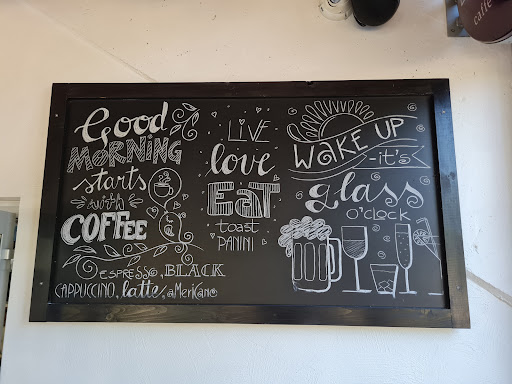 Good
MORNING
starts
with
COFFEE
ESPRESSO, BLACK
CAPPUCCINO, latte, aMeriCano
LiVE
love
EaT
toast
PANINI
WAKE UP
-it's
glass
O'clock
caffe